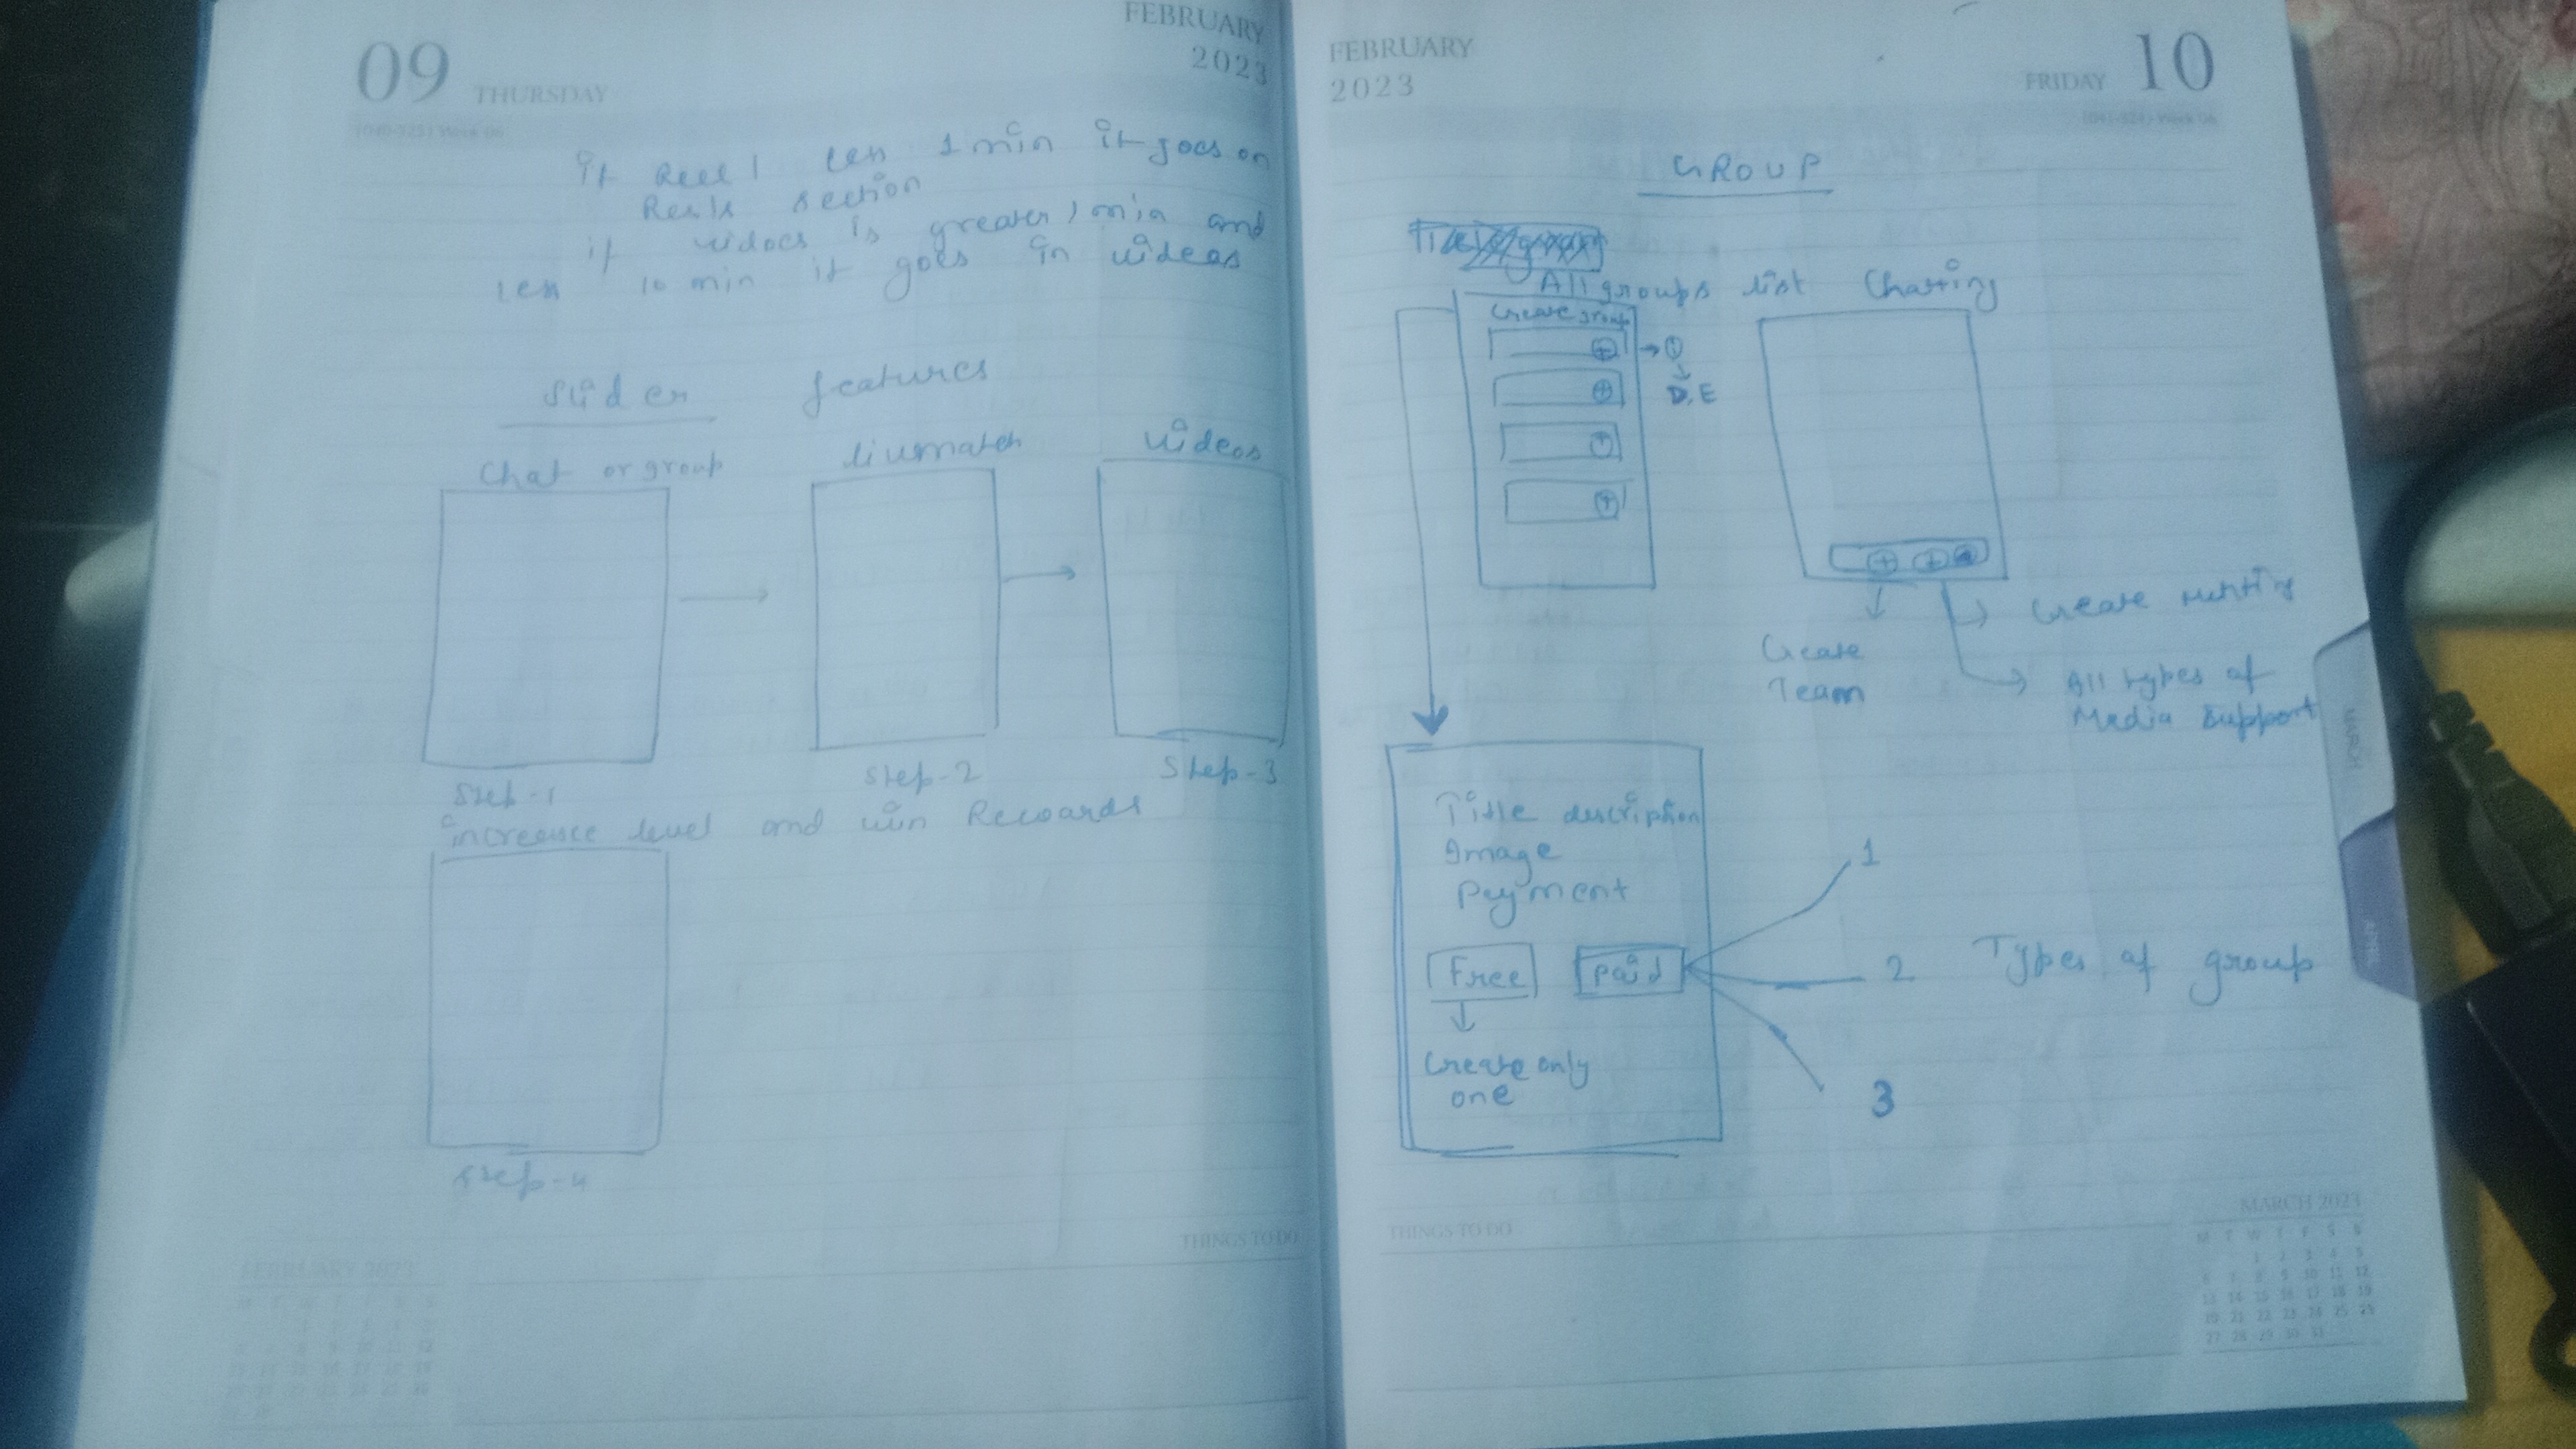 09 THURSDAY
FEBRUARY
2023
if Reel less 1 min it goes on
Reels section
if videos is greater 1 min and
less 10 min it goes in videos
Slider features
Chat or group
livematch
videos
Step-1
Step-2
Step-3
increase level and win Rewards
Step-4
THINGS TO DO
FEBRUARY 2023
FEBRUARY
2023
FRIDAY 10
GROUP
All groups list
Chatting
Create group
D, E
Create
Team
Create
All types of
Media Support
Title description
Image
Payment
Free
Paid
Create only
one
1
2
3
Types of group
THINGS TO DO
MARCH 2023
M T W T F S S
1 2 3 4 5
6 7 8 9 10 11 12
13 14 15 16 17 18 19
20 21 22 23 24 25 26
27 28 29 30 31
MARCH